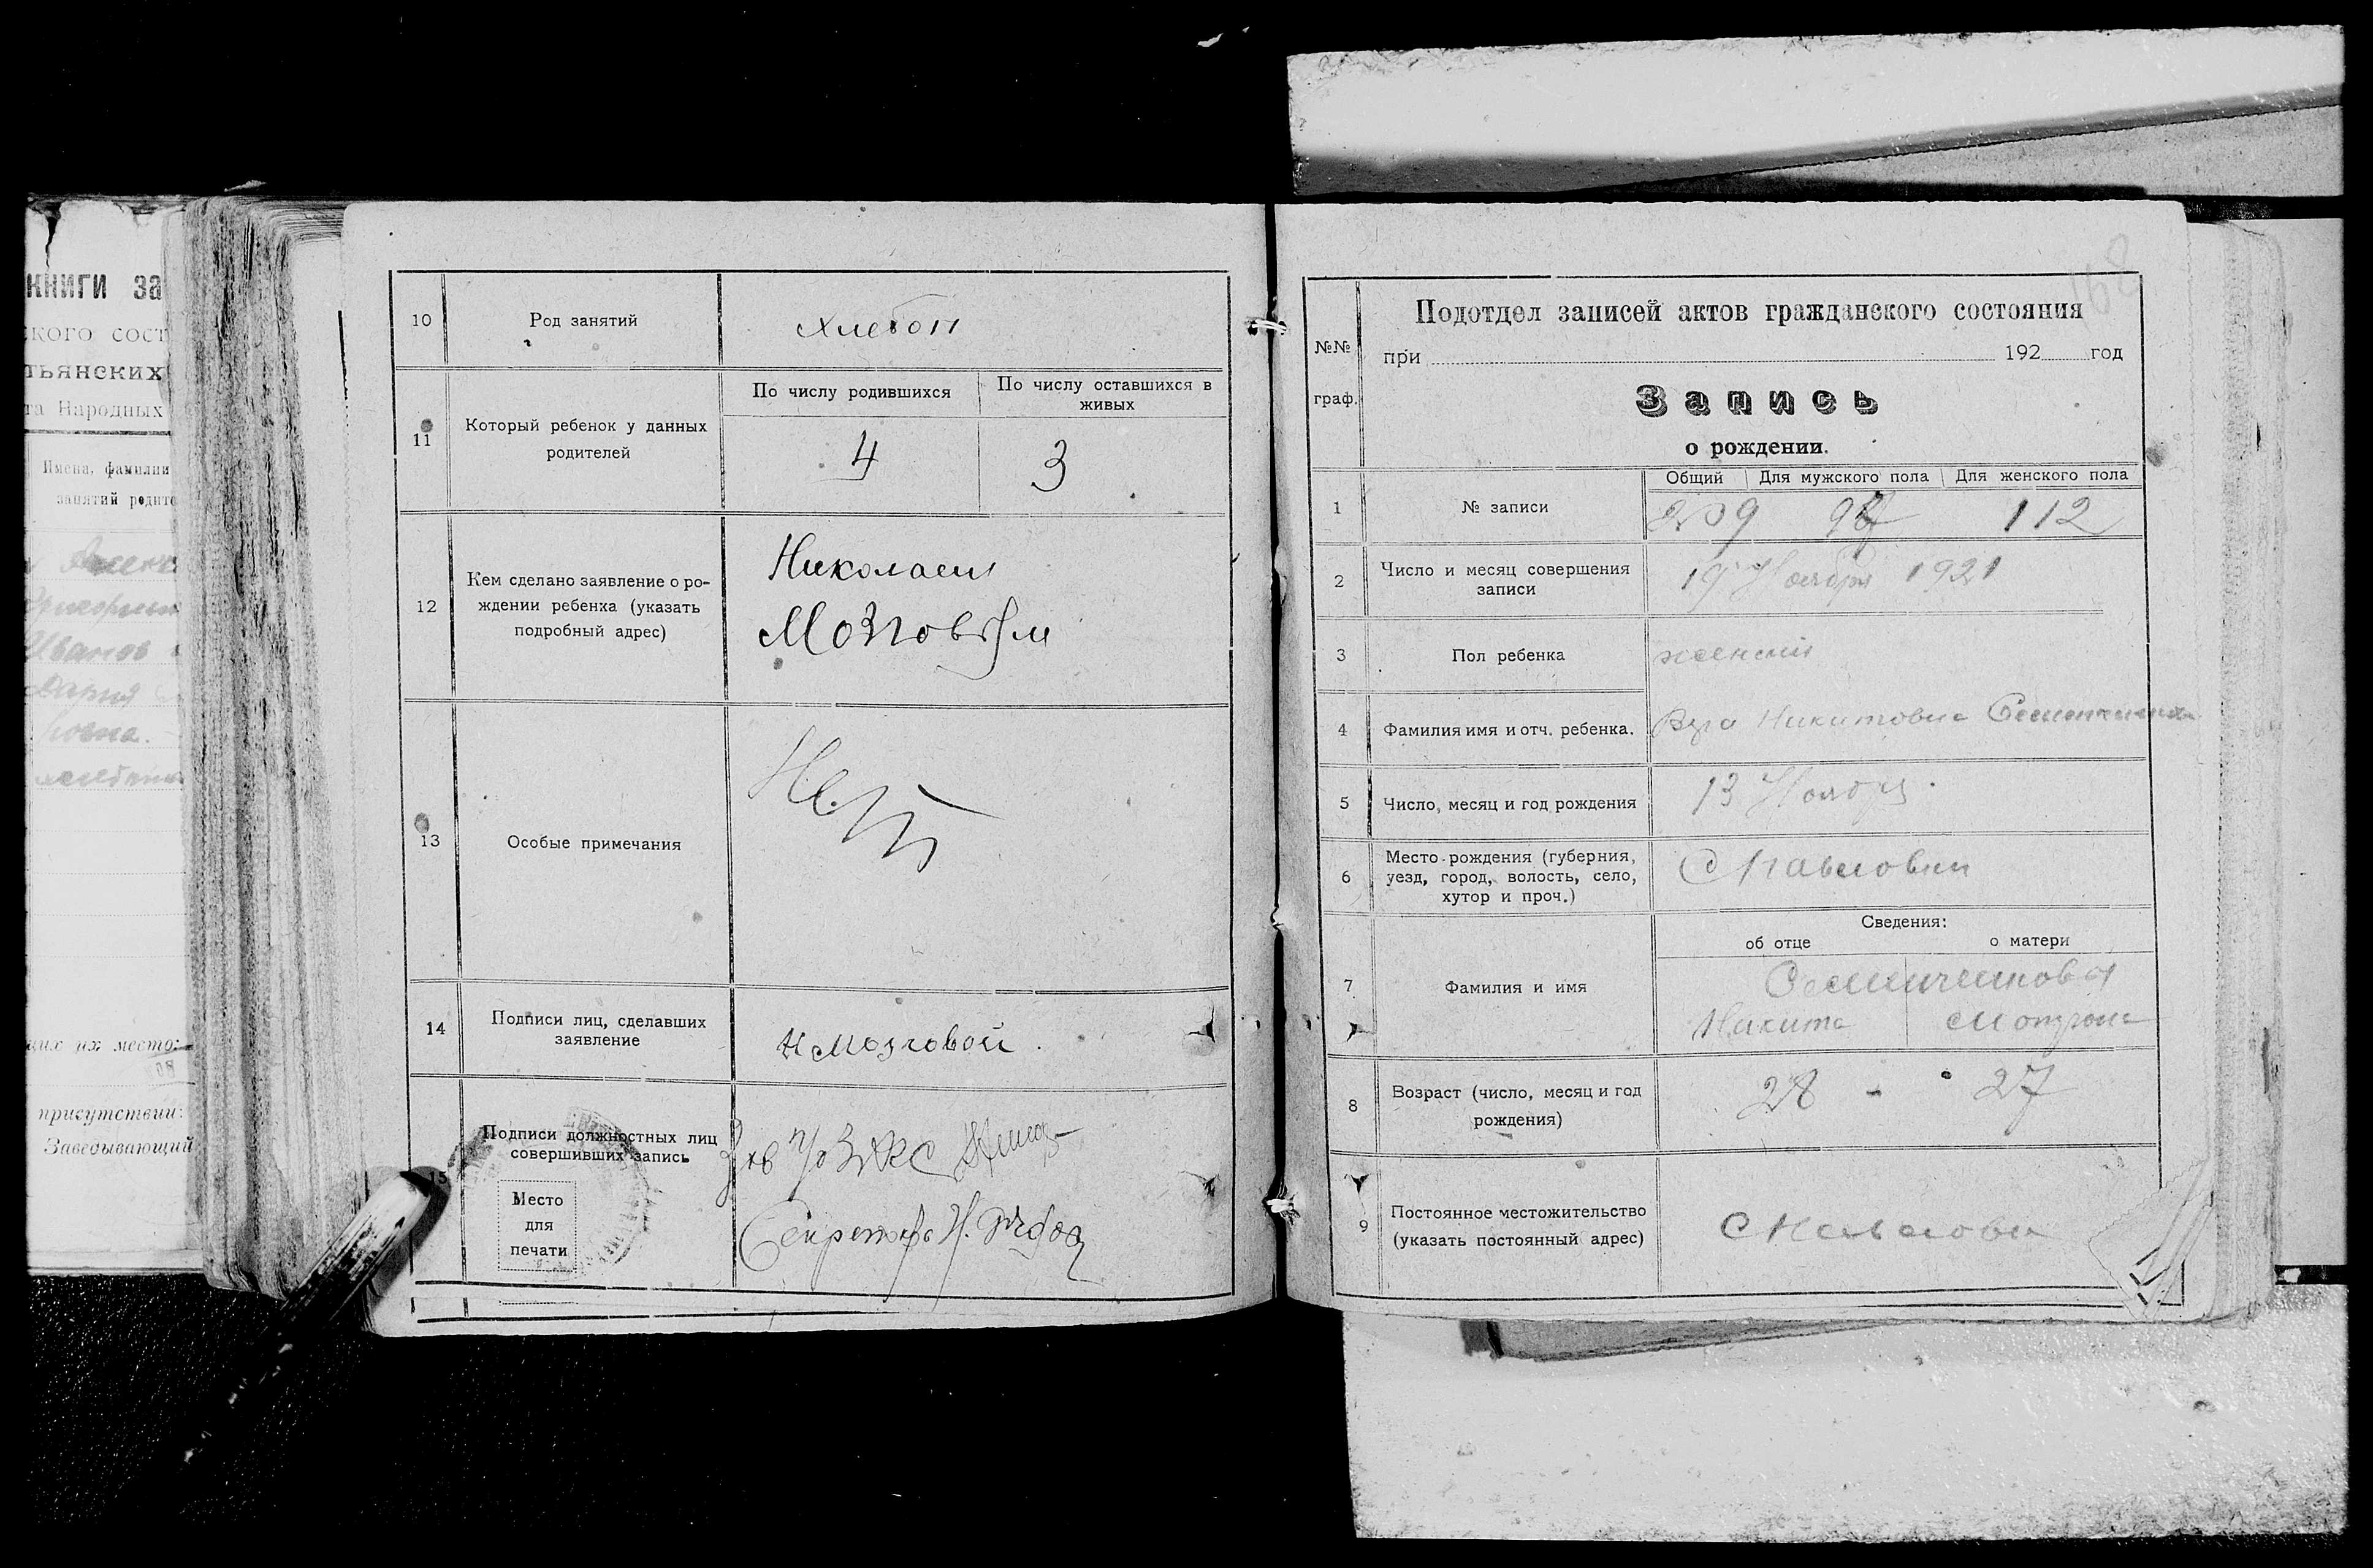 книги за
ского сост
тьянских
та Народных
Имена, фамилии
занятий родите
Иванов
Дария
щих их место:
присутствии:
Заведывающий
10 Род занятий Хлебоп
11 Который ребенок у данных родителей
По числу родившихся По числу оставшихся в живых
4 3
12 Кем сделано заявление о ро-
ждении ребенка (указать
подробный адрес)
Николаем
Мозговым
13 Особые примечания Нет
14 Подписи лиц, сделавших
заявление
Н Мозговой
15 Подписи должностных лиц
совершивших запись
Зав п/о ЗАКС
Секретарь Н.
Место
для
печати
168
№№
граф.
Подотдел записей актов гражданского состояния
при 192 год
Запись
о рождении.
Общий Для мужского пола Для женского пола
1 № записи 209 112
2 Число и месяц совершения
записи
19 Ноября 1921
3 Пол ребенка женский
4 Фамилия имя и отч. ребенка. Никитовна
5 Число, месяц и год рождения 13 Ноября
6 Место рождения (губерния,
уезд, город, волость, село,
хутор и проч.)
С Павловки
Сведения:
об отце о матери
7 Фамилия и имя
Никита Мотрона
8 Возраст (число, месяц и год
рождения)
28 - 27
9 Постоянное местожительство
(указать постоянный адрес)
С Павловки